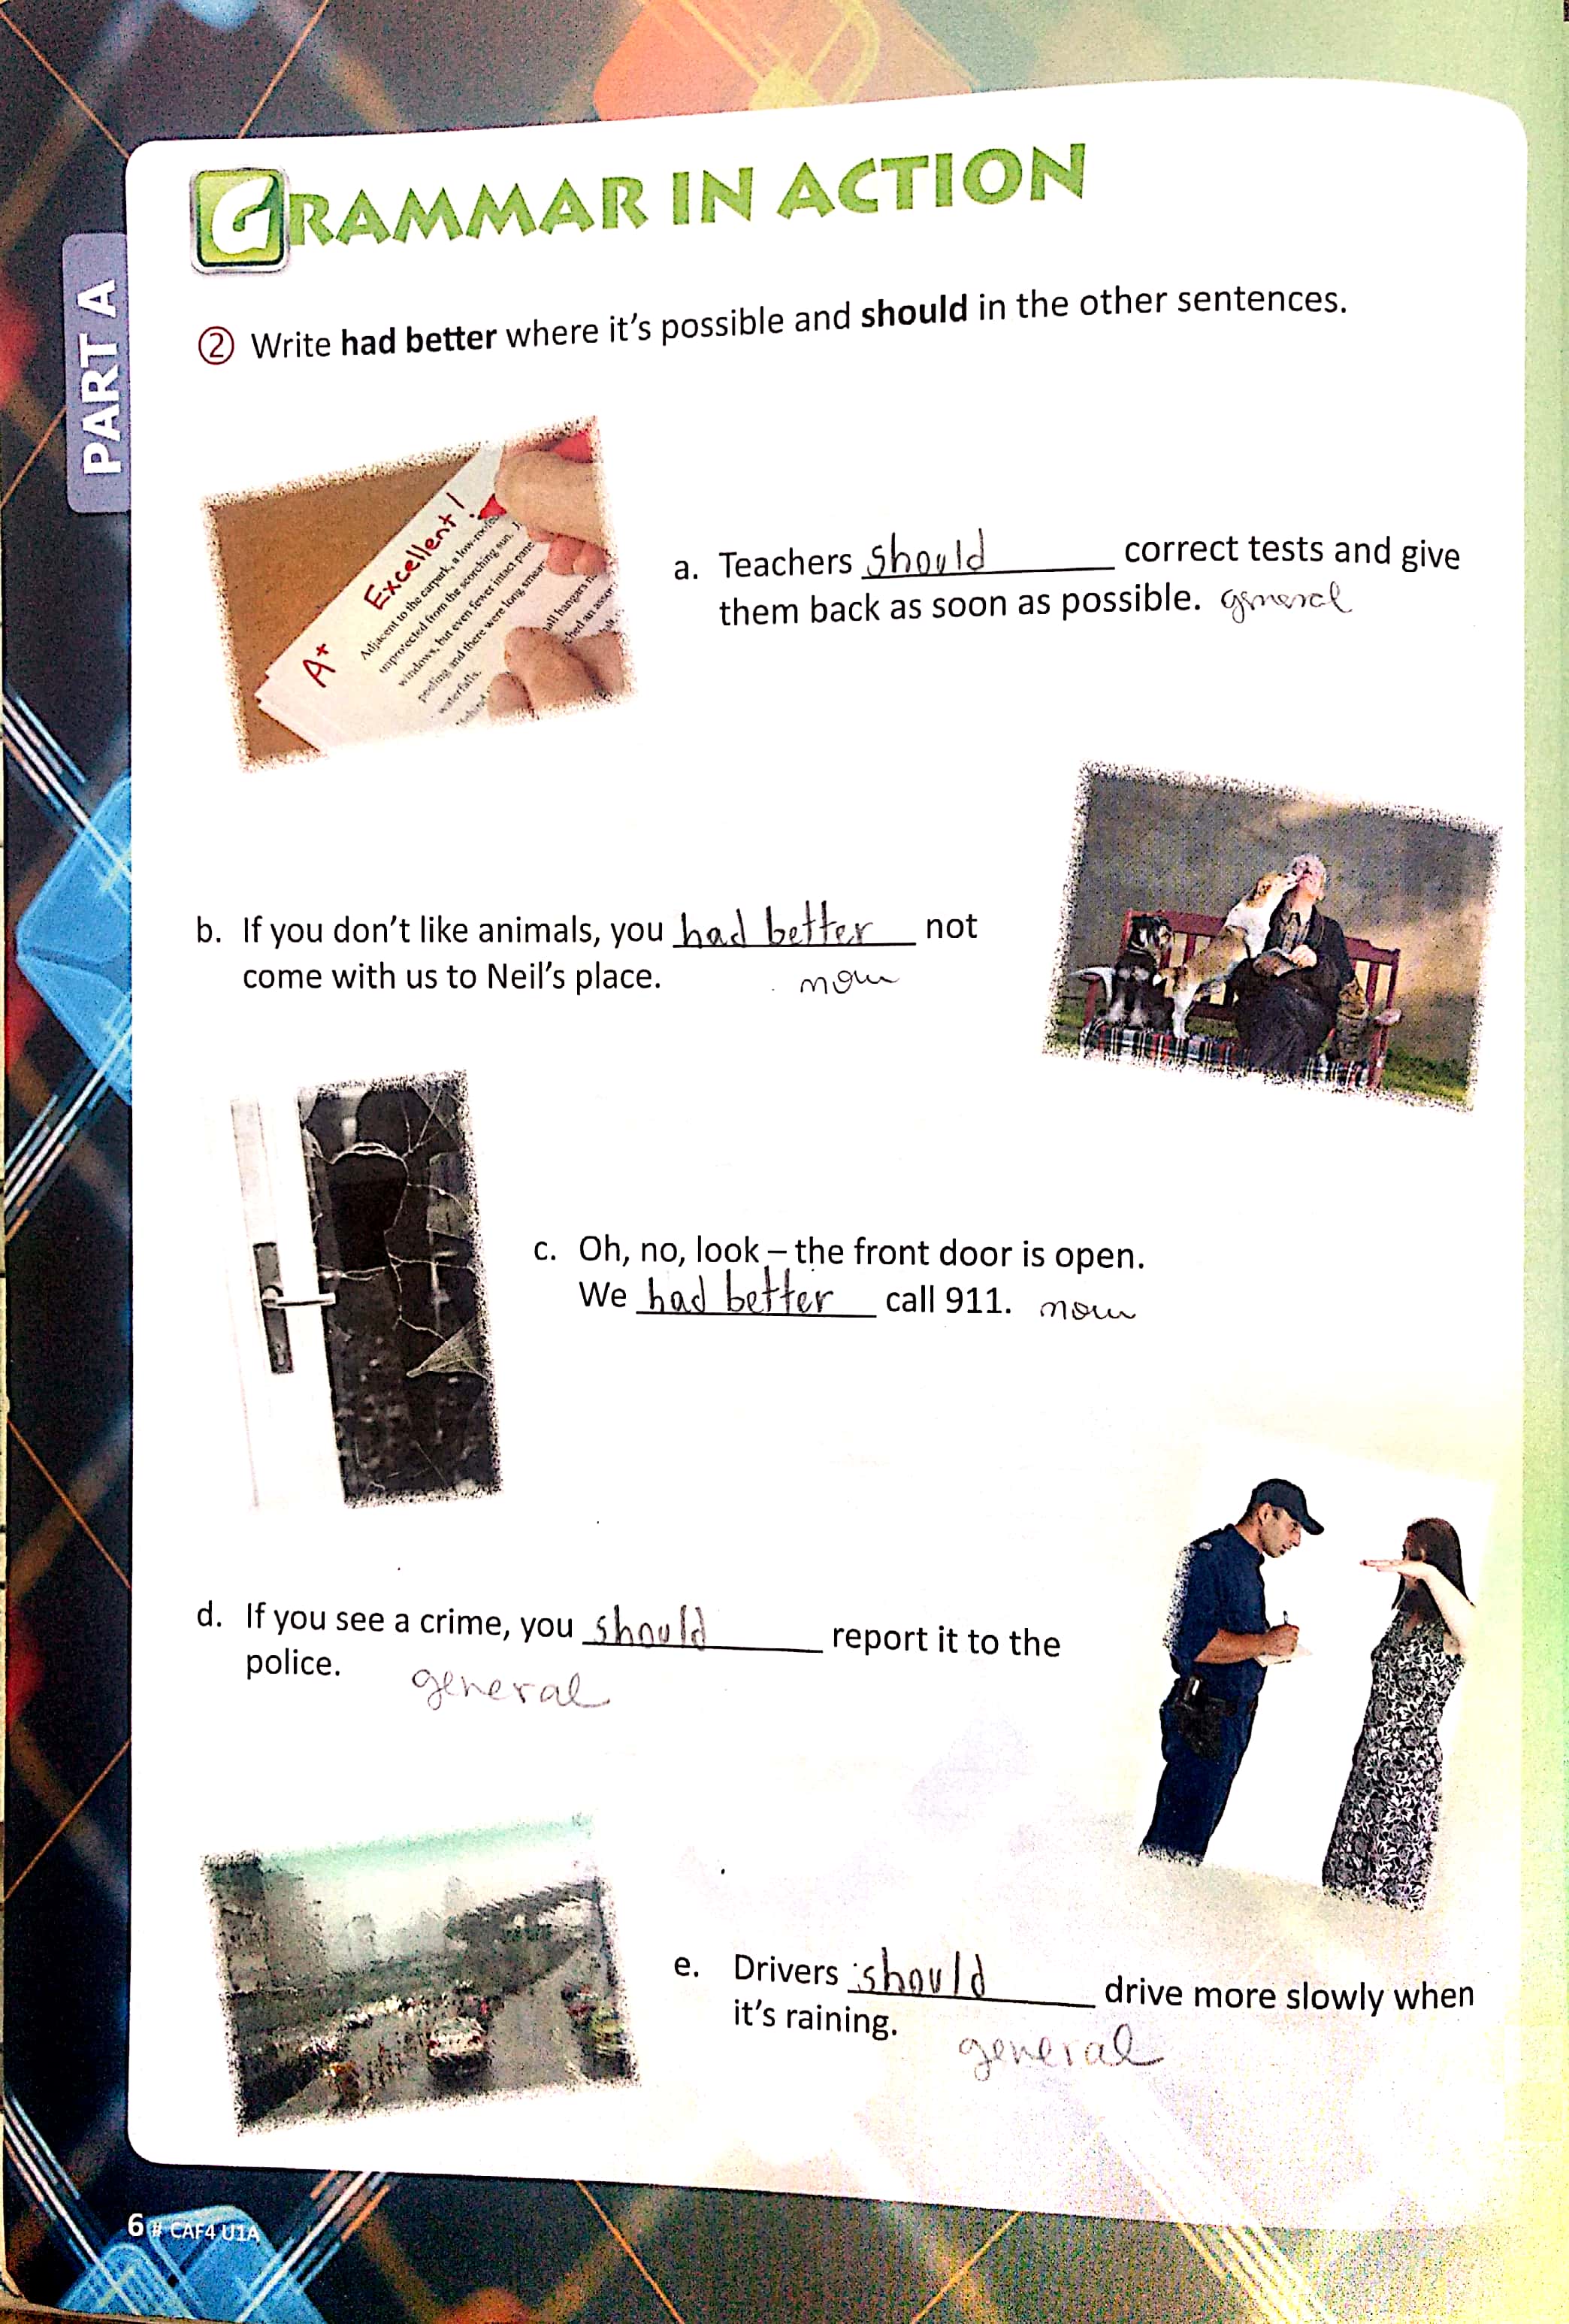 PART A
GRAMMAR IN ACTION
② Write had better where it's possible and should in the other sentences.
A+
Excellent!
Adjacent to the carpark, a low-roofed
unprotected from the scorching sun.
windows, but even fewer intact pane
peeling and there were long smear
waterfalls.
a. Teachers should correct tests and give
them back as soon as possible. general
b. If you don't like animals, you had better not
come with us to Neil's place. now
c. Oh, no, look – the front door is open.
We had better call 911. now
d. If you see a crime, you should report it to the
police. general
e. Drivers should drive more slowly when
it's raining. general
6 # CAF4 U1A